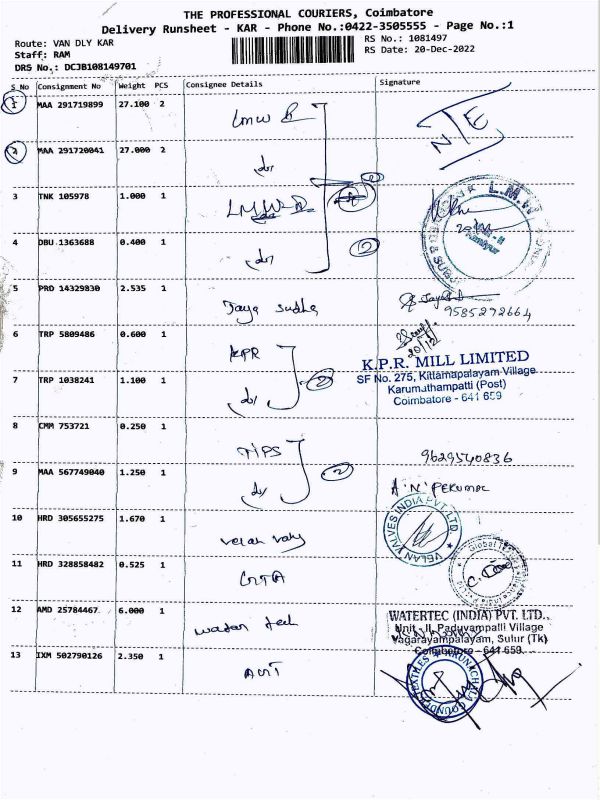 THE PROFESSIONAL COURIERS, Coimbatore
Delivery Runsheet - KAR - Phone No.:0422-3505555 - Page No.:1
Route: VAN DLY KAR
RS No.: 1081497
Staff: RAM
RS Date: 20-Dec-2022
DRS No.: DCJB108149701
S_No Consignment No Weight PCS Consignee Details Signature
1 MAA 291719899 27.100 2 LMW N/E
2 MAA 291720041 27.000 2
3 TNK 105978 1.000 1 LMW L.M.W
4 DBU 1363688 0.400 1 2
5 PRD 14329830 2.535 1 Jaya Sudha
9585272664
6 TRP 5809486 0.600 1 KPR
20/12
K.P.R. MILL LIMITED
SF No. 275, Kittampalayam Village
Karumathampatti (Post)
Coimbatore - 641 659
7 TRP 1038241 1.100 1 2
8 CMM 753721 0.250 1 TIPS 9629540836
9 MAA 567749040 1.250 1 2 A.N. PERUMAL
10 HRD 305655275 1.670 1 Velan
VELAN VALVES INDIA PVT. LTD.
11 HRD 328858482 0.525 1 GTA
Global
12 AMD 25784467 6.000 1 Water tech
WATERTEC (INDIA) PVT. LTD.,
Unit - II, Paduvampalli Village
Vagarayampalayam, Sulur (Tk)
Coimbatore - 641 659.
13 IXM 502790126 2.350 1 AMT
ARUNACHALA GOUNDER TEXTILES